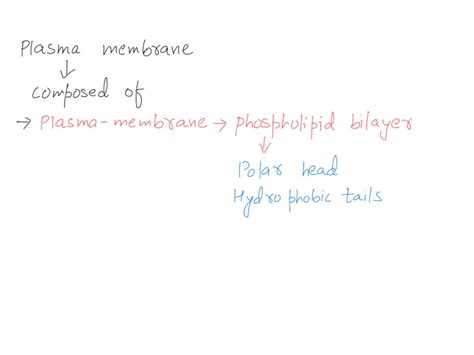 Plasma membrane
↓
composed of
→ Plasma-membrane → phospholipid bilayer
↓
Polar head
Hydrophobic tails